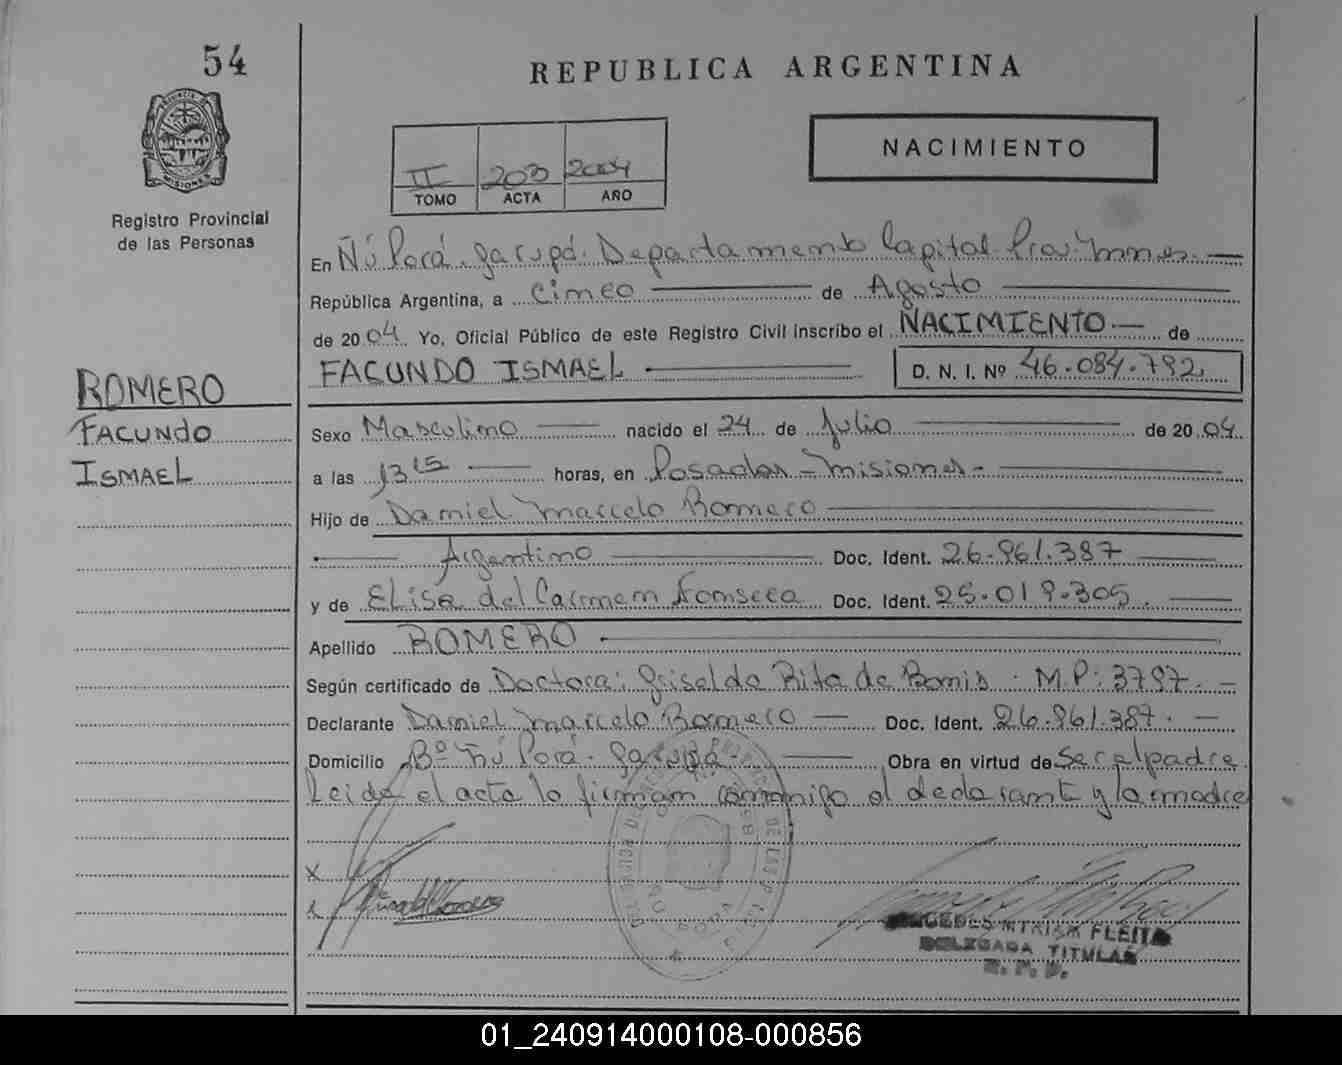 54
REPUBLICA ARGENTINA
PROVINCIA DE
MISIONES
Registro Provincial
de las Personas
II 203 2004
TOMO ACTA AÑO
NACIMIENTO
En Ñú Porá. Garupá. Departamento Capital Prov. Mnes.
República Argentina, a Cinco de Agosto
de 2004 Yo, Oficial Público de este Registro Civil inscribo el NACIMIENTO de
FACUNDO ISMAEL D. N. I. Nº 46.084.792
ROMERO
FACUNDO
ISMAEL
Sexo Masculino nacido el 24 de Julio de 2004
a las 13 15 horas, en Posadas - Misiones -
Hijo de Daniel Marcelo Romero
Argentino Doc. Ident. 26.961.387
y de Elisa del Carmen Fonseca Doc. Ident. 25.019.305
Apellido ROMERO
Según certificado de Doctora: Griselda Rita de Bonis. M.P: 3797.
Declarante Daniel Marcelo Romero Doc. Ident. 26.961.387.
Domicilio Bº Ñú Porá. Garupá. Obra en virtud de Ser el padre
Leída el acta lo firman conmigo el declarante y la madre
X
MERCEDES MYRIAM FLEITA
DELEGADA TITULAR
R. P. P.
01_240914000108-000856